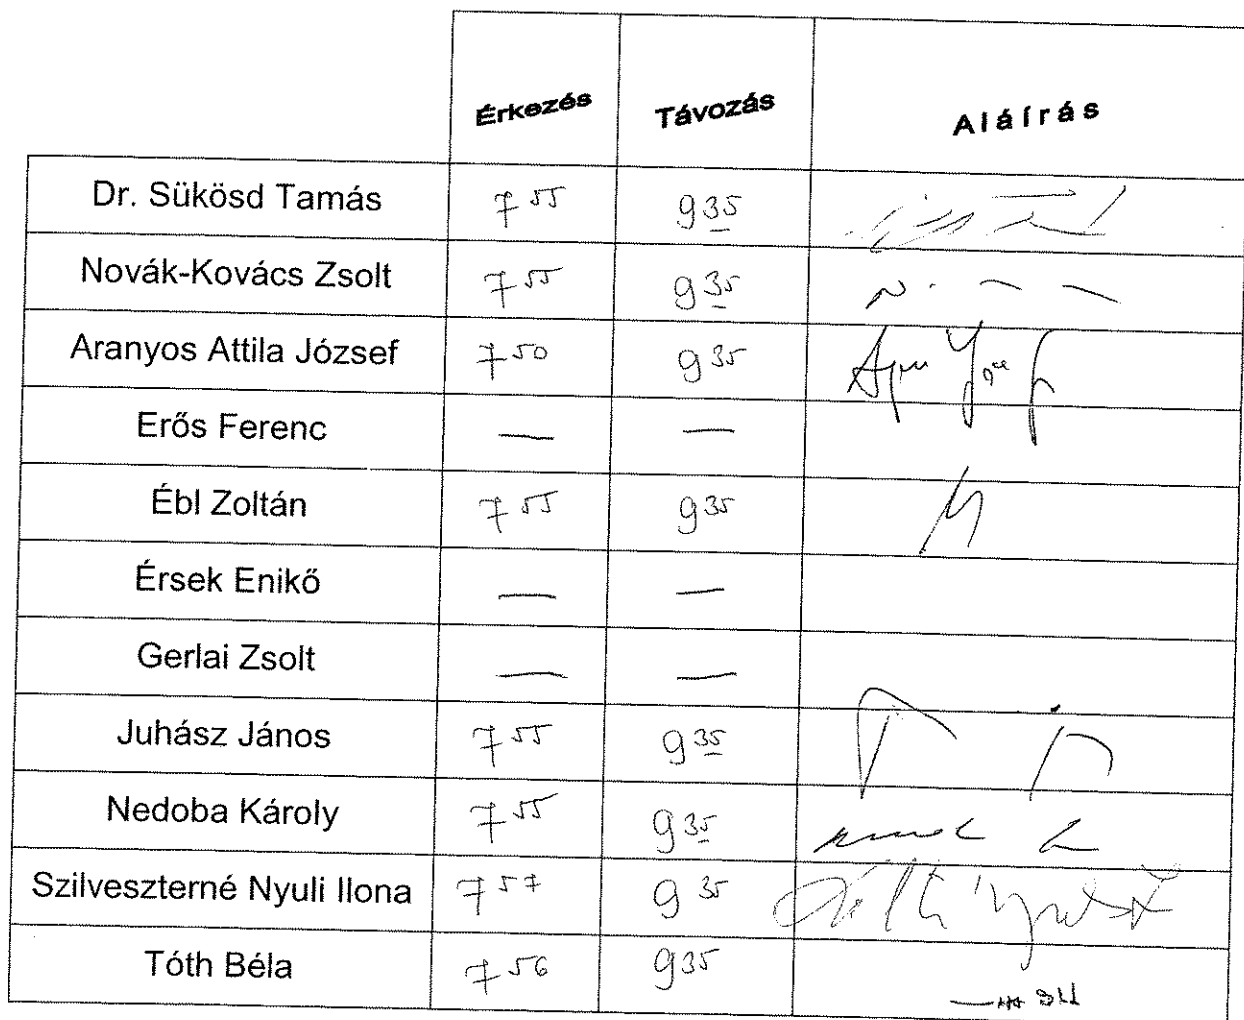 Érkezés Távozás Aláírás
Dr. Sükösd Tamás 7 55 9 35
Novák-Kovács Zsolt 7 55 9 35
Aranyos Attila József 7 50 9 35
Erős Ferenc — —
Ébl Zoltán 7 55 9 35
Érsek Enikő — —
Gerlai Zsolt — —
Juhász János 7 55 9 35
Nedoba Károly 7 55 9 35
Szilveszterné Nyuli Ilona 7 57 9 35
Tóth Béla 7 56 9 35